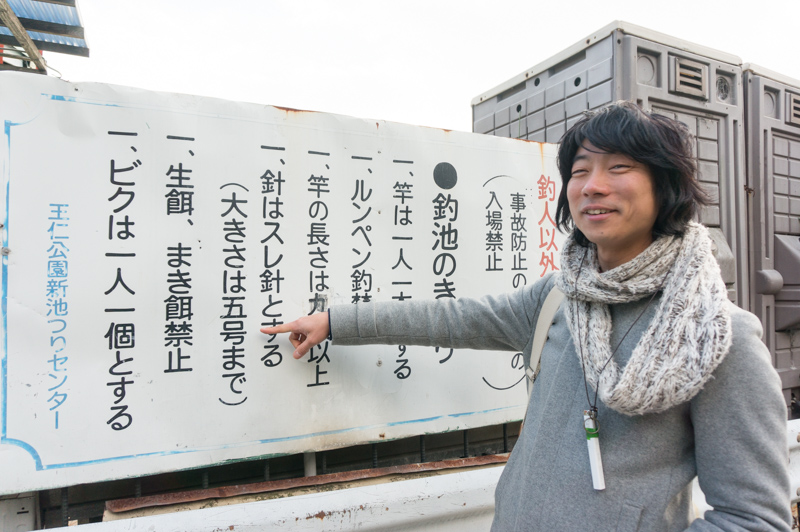 釣人以外
事故防止の
の
入場禁止
●釣池のき
り
一、竿は一人一
する
一、ルンペン釣
一、竿の長さは
以上
一、針はスレ針とする
（大きさは五号まで）
一、生餌、まき餌禁止
一、ビクは一人一個とする
王仁公園新池つりセンター